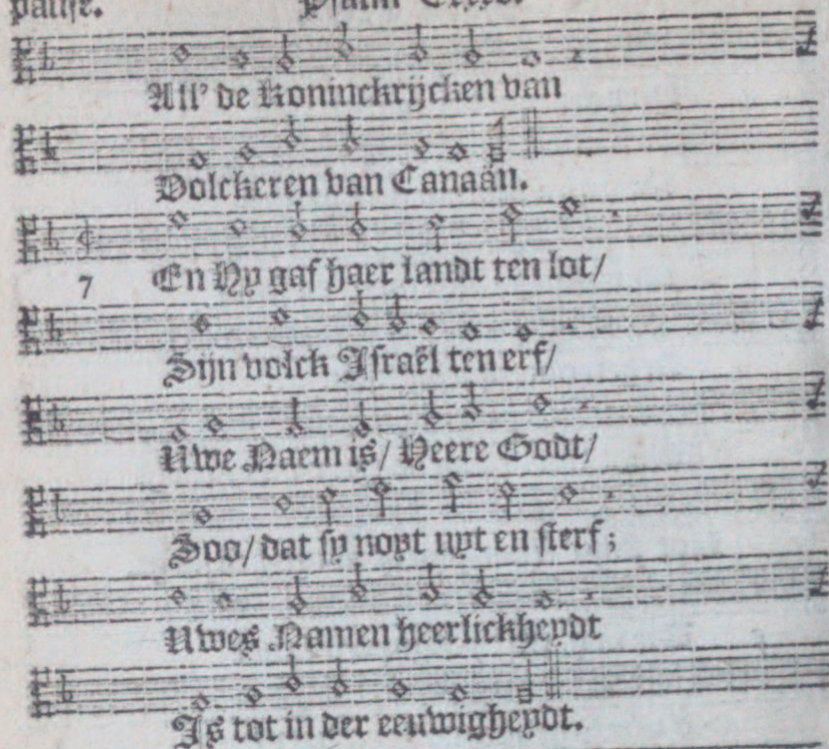 pause. Psalm
All' de Koninckrijcken van
Volckeren van Canaän.
7 En Hy gaf haer landt ten lot/
Sijn volck Israël ten erf/
Uwe Naem is/ Heere Godt/
Soo/ dat sy noyt uyt en sterf;
Uwes Namen heerlickheydt
Is tot in der eeuwigheydt.